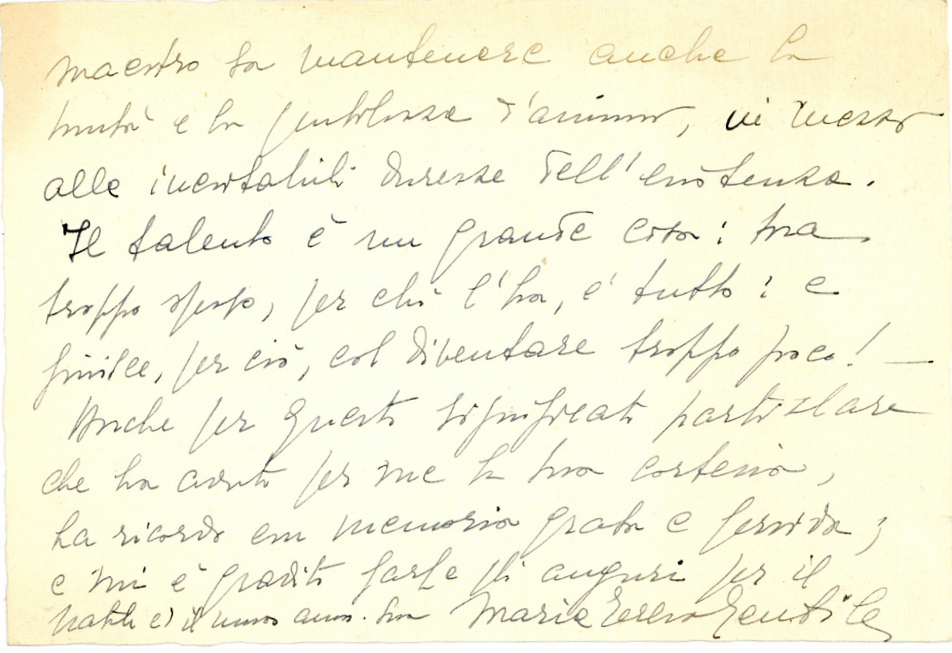 maestro sa mantenere anche la
bontà e la gentilezza d'animo, in mezzo
alle inevitabili durezze dell'esistenza.
Il talento è un grande cosa: ma
troppo spesso, per chi l'ha, è tutto: e
finisce, per ciò, col diventare troppo poco! —
Anche per questo significato particolare
che ha avuto per me la sua cortesia,
la ricordo con memoria grata e fervida;
e mi è gradito farle gli auguri per il
Natale ed il nuovo anno. Sua Maria Gentile